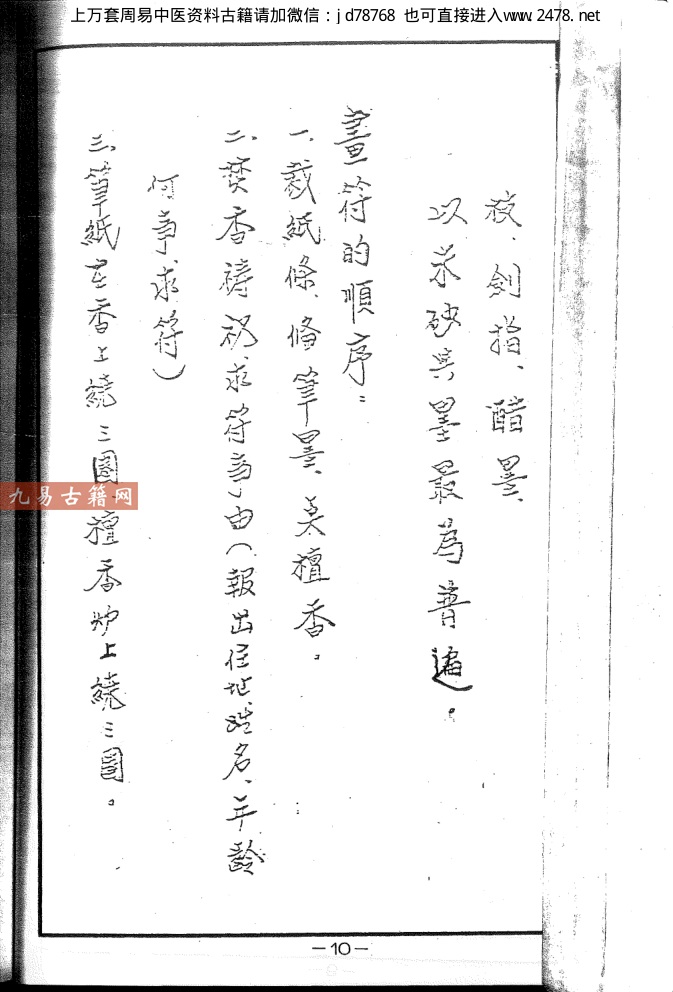 上万套周易中医资料古籍请加微信：jd78768 也可直接进入www.2478.net
液、劍指、醋墨
以朱砂與墨最為普遍。
畫符的順序：
一、裁紙條、備筆墨、美檀香。
二、焚香禱祝求符事由（報出住址、姓名、年齡
何事求符）
三、筆紙在香上繞三圈檀香炉上繞三圈。
九易古籍网
—10—